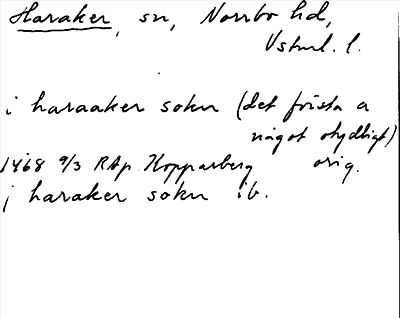 Haraker, sn, Norrbo hd,
Vstml. l.
i haraaker sokn (det första a
något otydligt)
1468 9/3 RAp Kopparberg orig.
j haraker sokn ib.